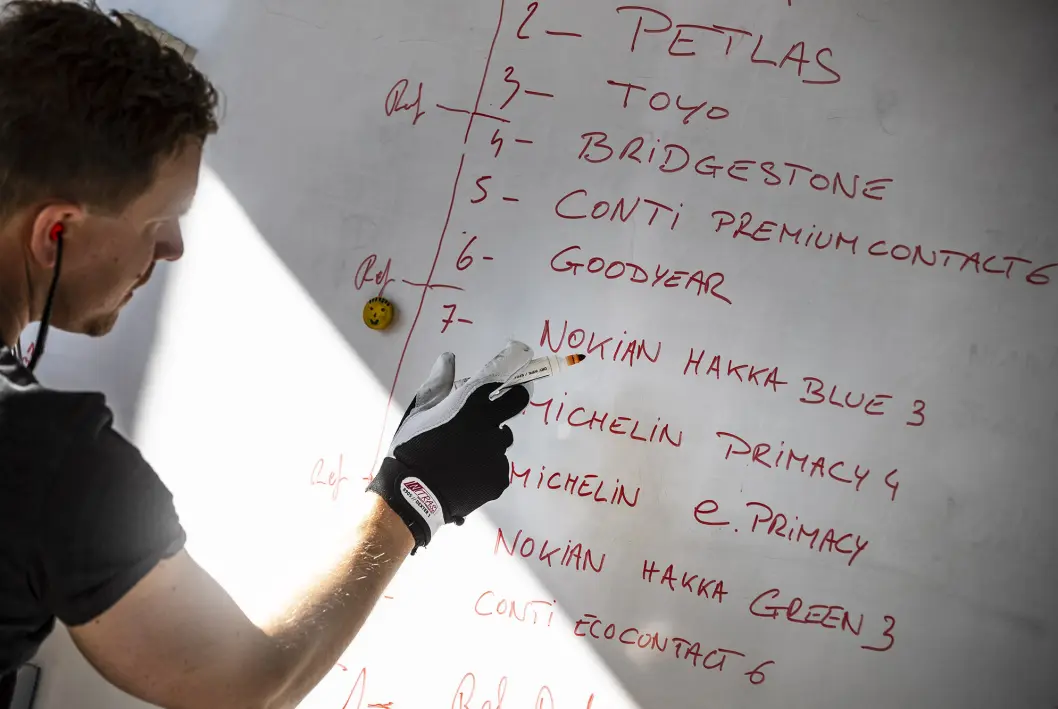 2 - PETLAS
3 - TOYO
Ref
4 - BRIDGESTONE
5 - CONTI PREMIUMCONTACT 6
6 - GOODYEAR
Ref
7 - NOKIAN HAKKA BLUE 3
MICHELIN PRIMACY 4
MICHELIN e.PRIMACY
Ref
NITRAS
NOKIAN HAKKA GREEN 3
CONTI ECOCONTACT 6
Ref